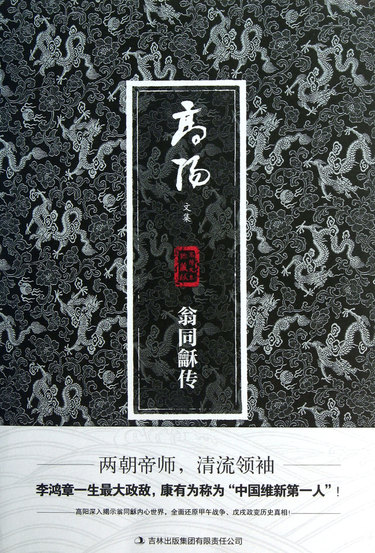 高阳
文集
翁同龢传
两朝帝师，清流领袖
李鸿章一生最大政敌，康有为称为“中国维新第一人”！
高阳深入揭示翁同龢内心世界，全面还原甲午战争、戊戌政变历史真相！
吉林出版集团有限责任公司